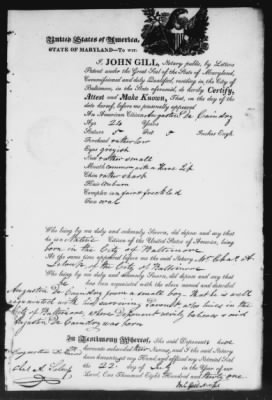 United States of America,
STATE OF MARYLAND—To wit:
I, JOHN GILL, Notary public, by Letters
Patent under the Great Seal of the State of Maryland,
Commissioned and duly Qualified, residing in the City of
Baltimore, in the State aforesaid, do hereby Certify,
Attest and Make Known, That, on the day of the
date hereof, before me personally appeared
An American Citizen Augustin De
Age 24 Years
Stature 5 Feet 5 Inches Engh.
Forehead rather low
Eyes greyish
Nose rather small
Mouth common with a Hare Lip
Chin rather short
Hair auburn
Complex
Face oval
Who being by me duly and solemnly Sworn, did depose and say that
he is a Native Citizen of the United States of America,
being born in the City of Baltimore
At the same time appeared before me the said Notary Mr. Chas. A.
of the City of Baltimore
Who being by me duly and solemnly Sworn, did depose and say that
he has been acquainted with the above named and described
Augustin De from a small boy, that he is well
acquainted with his surviving Parent, who lives in the
City of Baltimore, where Deponent verily believes said
Augustin De was born
In Testimony Whereof, The said Deponents have
hereunto subscribed their Names, and I the said Notary
have hereunto set my Hand and affixed my Notarial Seal
the 22 day of July in the Year of our
Lord, One Thousand Eight Hundred and thirty one
Augustin De
Chas A.
John Gill